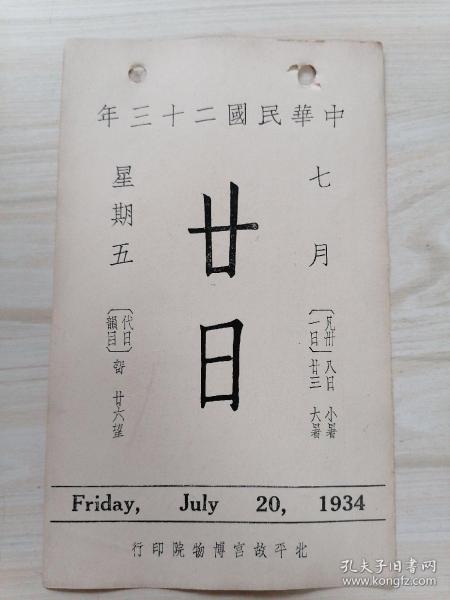 中華民國二十三年
七月
〔凡卅一日〕
八日 小暑
廿三 大暑
廿日
星期五
〔代日韻目〕
哿 廿六望
Friday, July 20, 1934
北平故宮博物院印行
孔夫子旧书网
www.kongfz.com